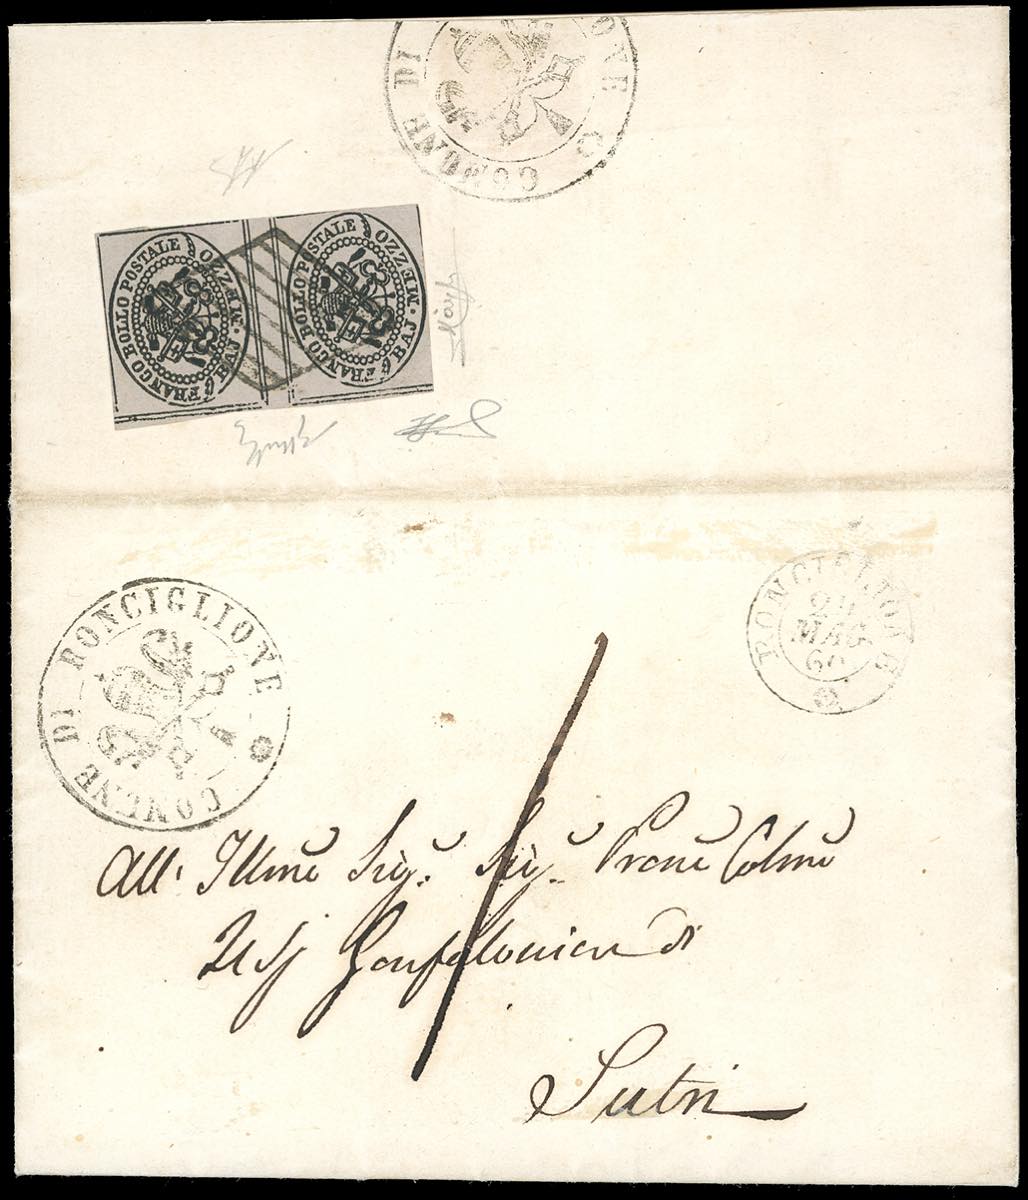 COMUNE DI
FRANCO BOLLO POSTALE MEZZO BAJ.
FRANCO BOLLO POSTALE MEZZO BAJ.
COMUNE DI RONCIGLIONE
RONCIGLIONE
24
MAG
60
All' Illmo Sigr. Sig. Prone Colmo
Gonfaloniere di
Sutri